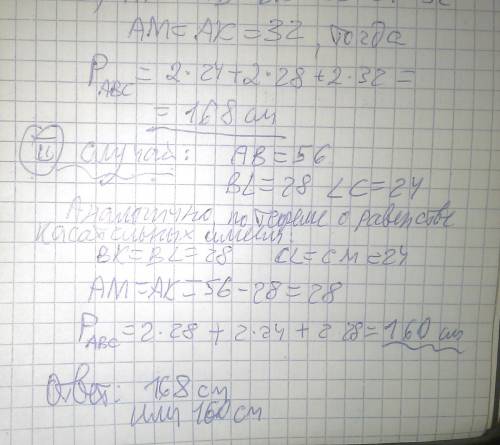 AM = AK = 32, тогда
P_ABC = 2·24+2·28+2·32 =
= 168 см
II случай: AB = 56
BL = 28 LC = 24
Аналогично, по теореме о равенстве
касательных имеем:
BK = BL = 28 CL = CM = 24
AM = AK = 56 - 28 = 28
P_ABC = 2·28 + 2·24 + 2·28 = 160 см
Ответ: 168 см
или 160 см